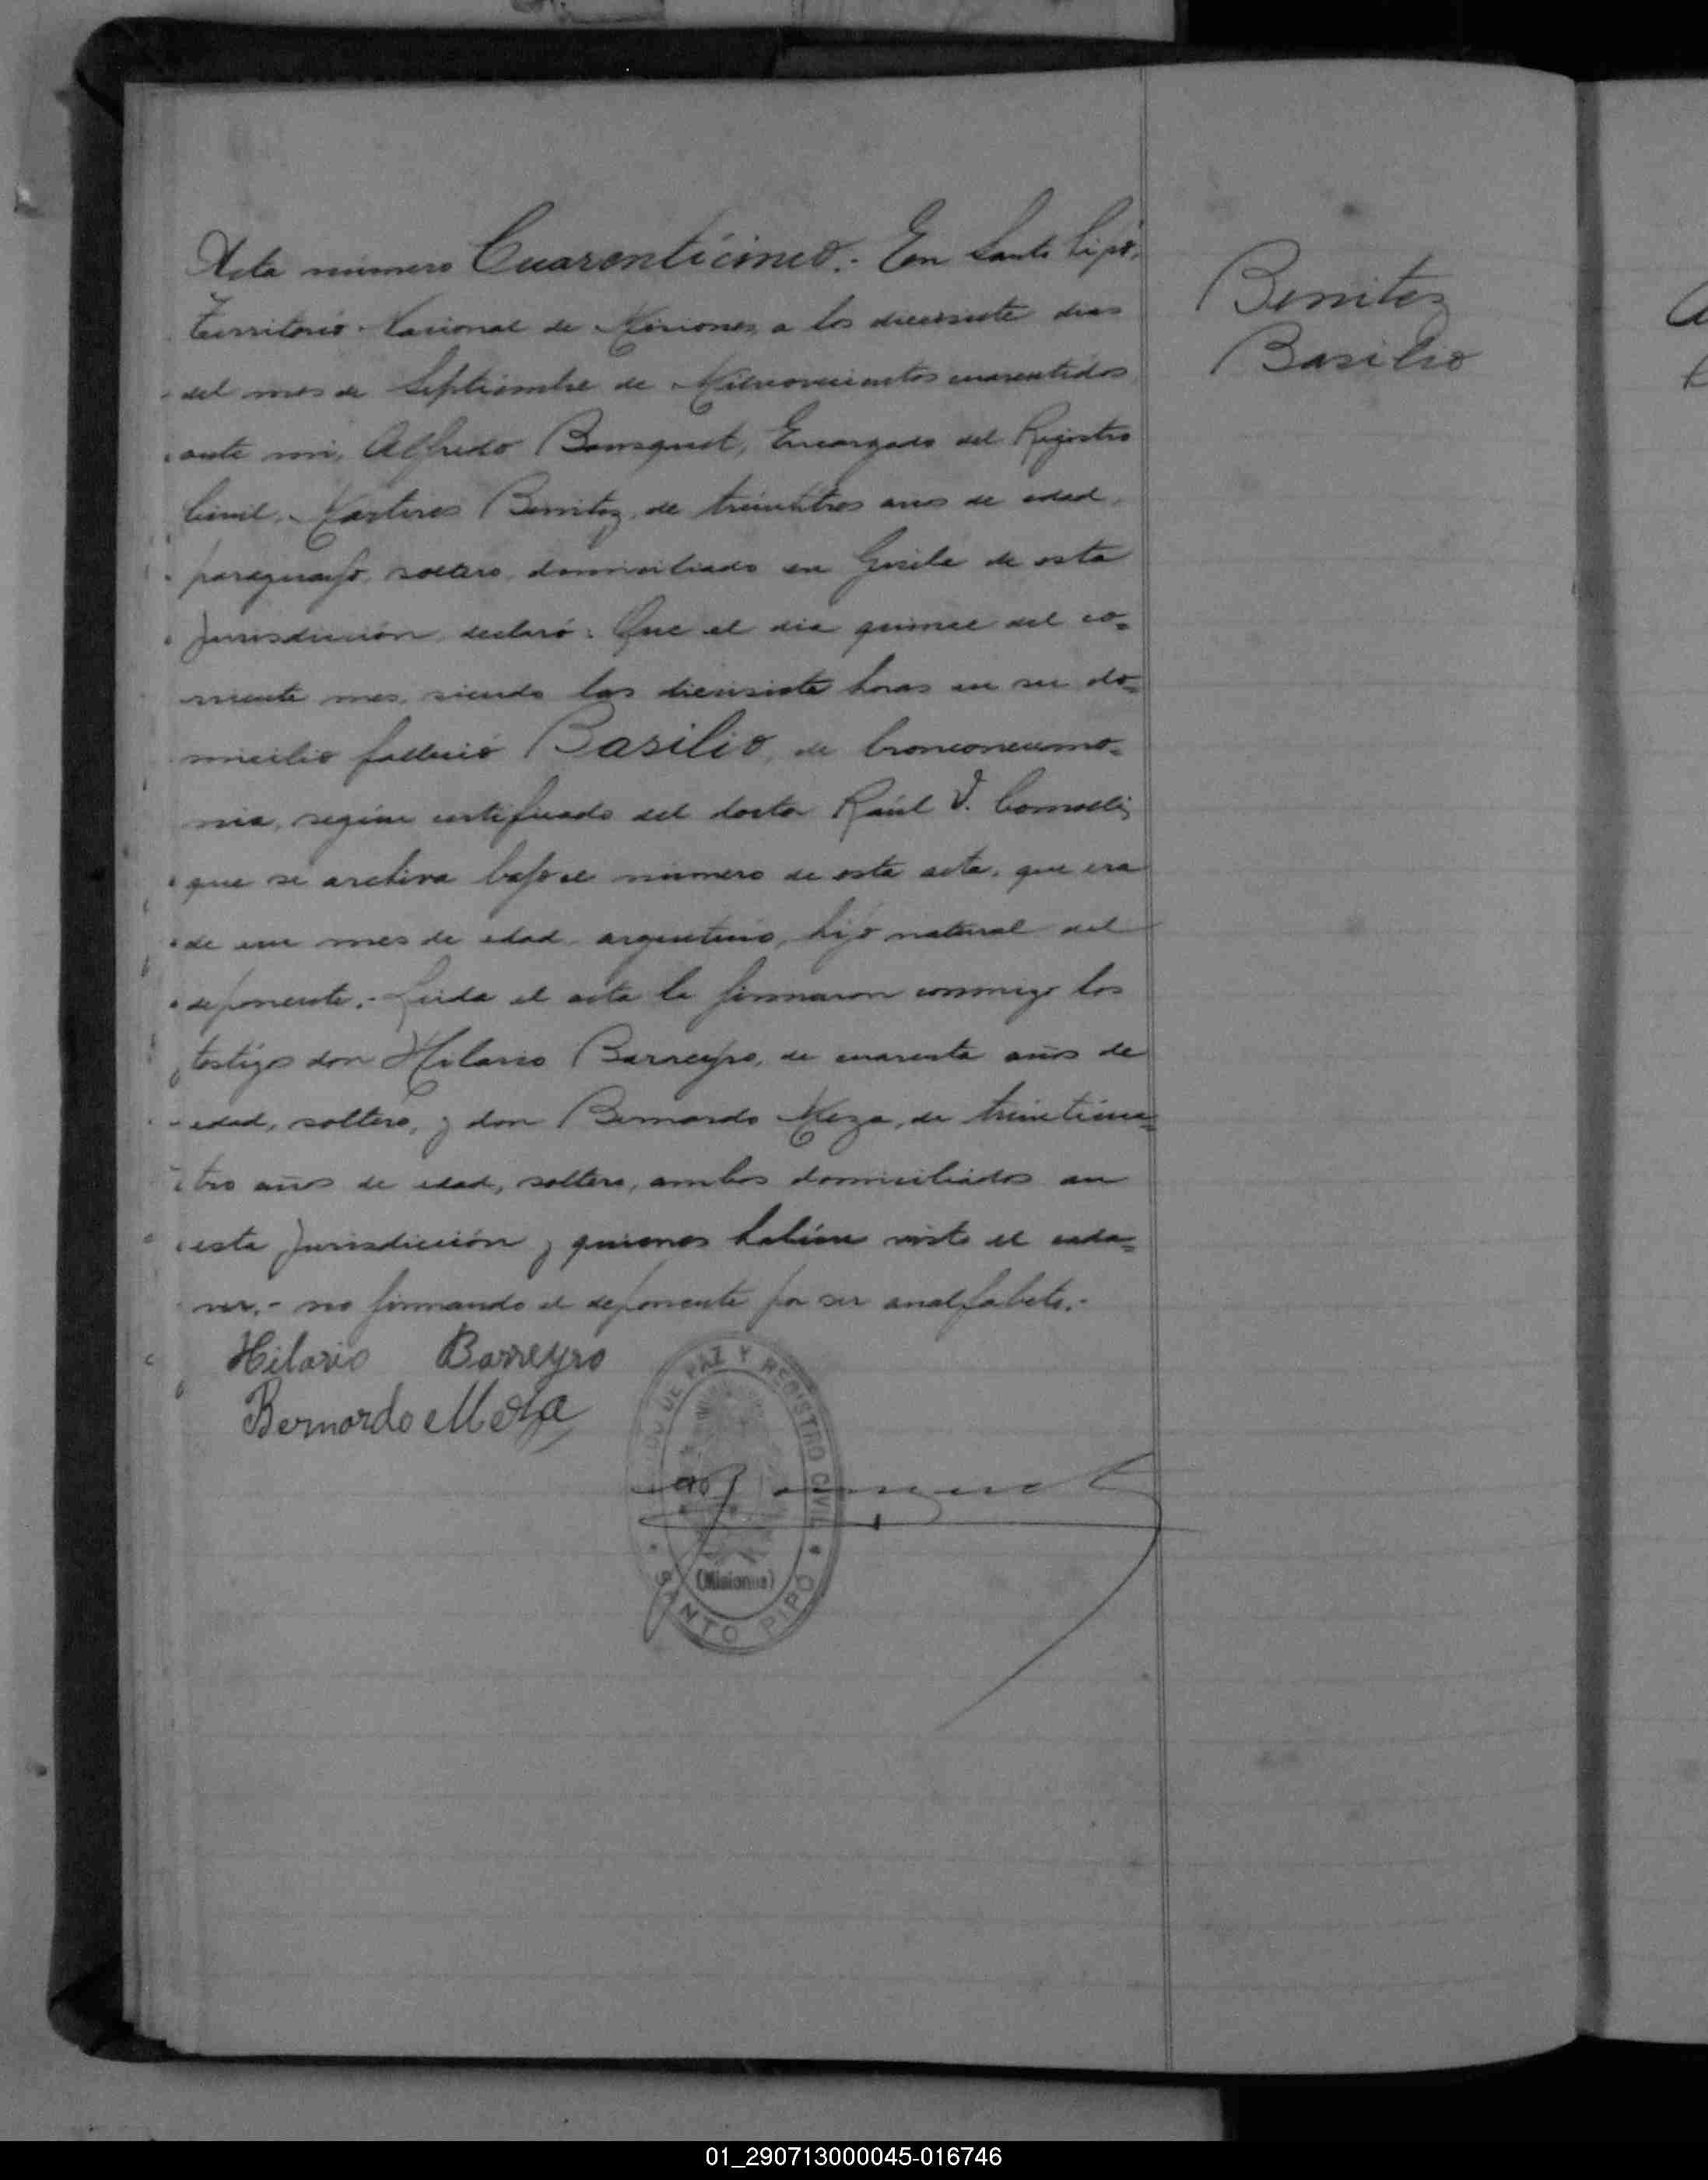 Acta número Cuarenticinco.- En Santo Pipó,
Territorio Nacional de Misiones, a los diecisiete dias
del mes de Septiembre de Milnovecientos cuarentidos
ante mi, Alfredo Bousquet, Encargado del Registro
Civil, Martires Benitez, de treintitres años de edad,
paraguayo, soltero, domiciliado en de esta
Jurisdicción, declaró: Que el dia quince del co=
rriente mes, siendo las diecisiete horas en su do=
micilio falleció Basilio, de bronconeumo=
nia, según certificado del doctor Raúl J.
que se archiva bajo el número de esta acta, que era
de un mes de edad, argentino, hijo natural del
deponente.- Leida el acta la firmaron conmigo los
testigos don Hilario Barreyro, de cuarenta años de
edad, soltero, y don Bernardo Meza, de treinticua=
tro años de edad, soltero, ambos domiciliados en
esta Jurisdicción y quienes habian visto el cada=
ver.- no firmando el deponente por ser analfabeto.-
Hilario Barreyro
Bernardo Meza
DE PAZ Y REGISTRO CIVIL
(Misiones)
SANTO PIPO
Benitez
Basilio
01_290713000045-016746